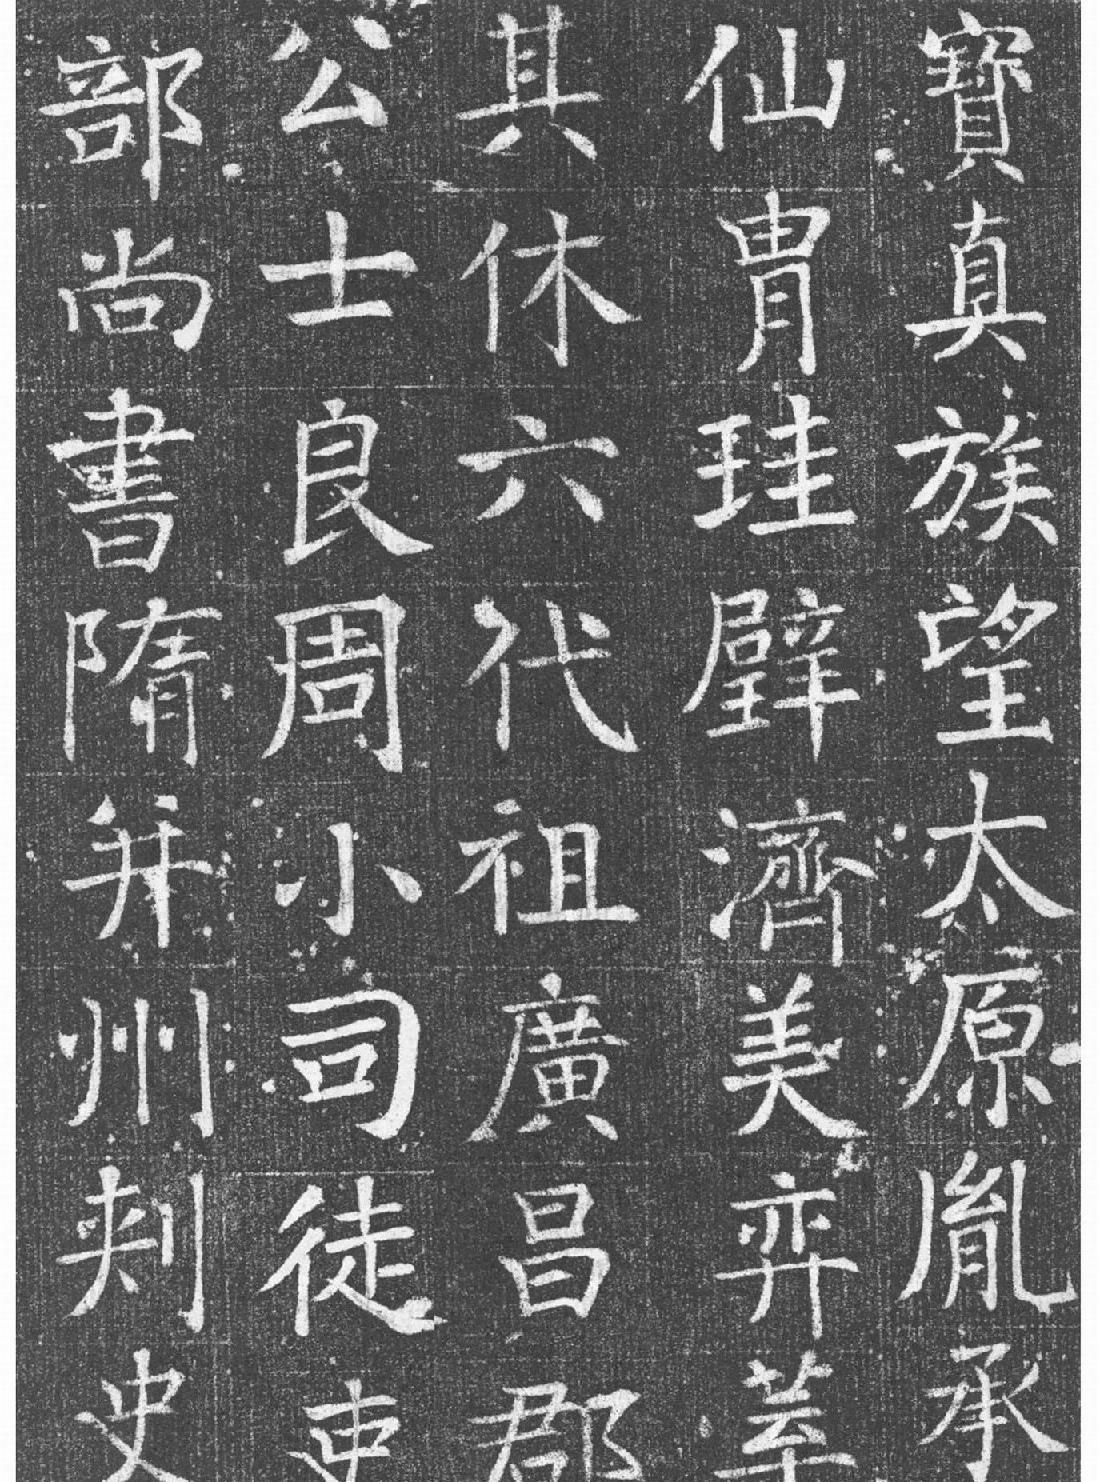 寶真族望太原胤承
仙胄珪璧濟美弈葉
其休六代祖廣昌郡
公士良周小司徒吏
部尚書隋并州刺史